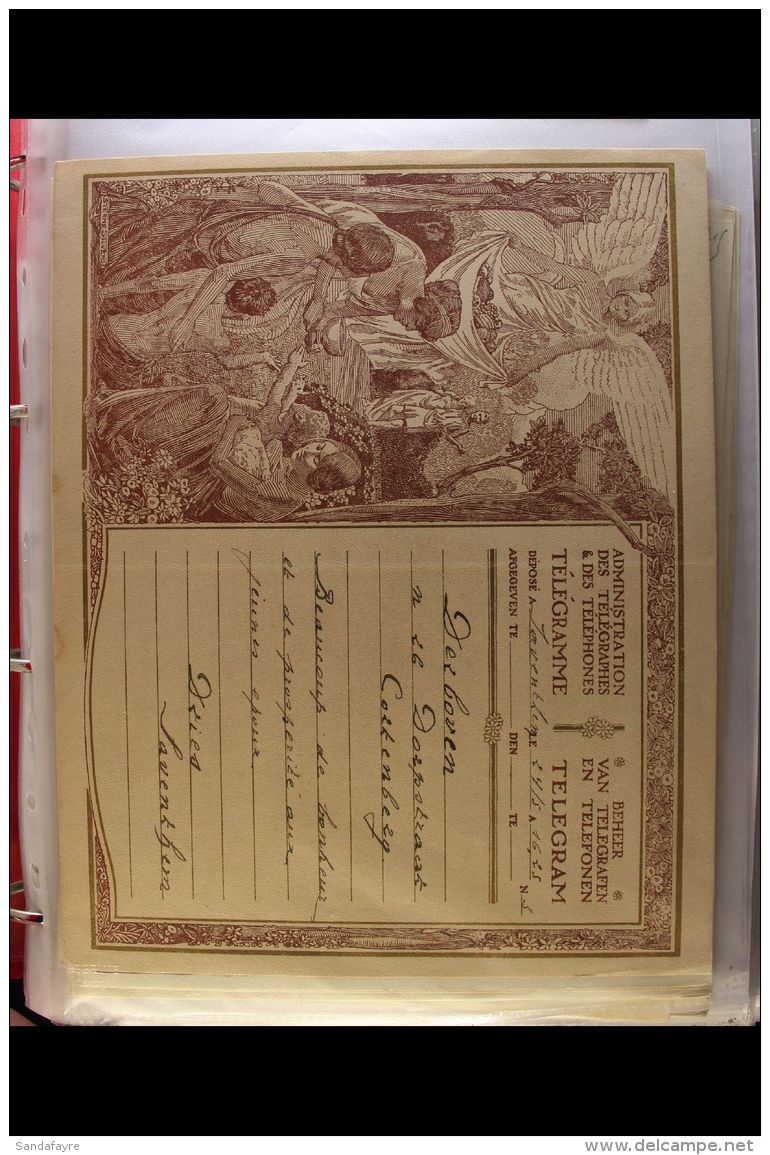 ADMINISTRATION
DES TÉLÉGRAPHES
& DES TÉLÉPHONES
BEHEER
VAN TELEGRAFEN
EN TELEFONEN
TÉLÉGRAMME
TELEGRAM
DÉPOSÉ A Saventhem LE 24/5 A 16,25 N 3
AFGEGEVEN TE DEN TE
Derboven
n 26 Dorpstraat
Cortenberg
Beaucoup de bonheur
et de prospérité aux
jeunes epoux
Dries
Saventhem
Sandafayre
www.delcampe.net